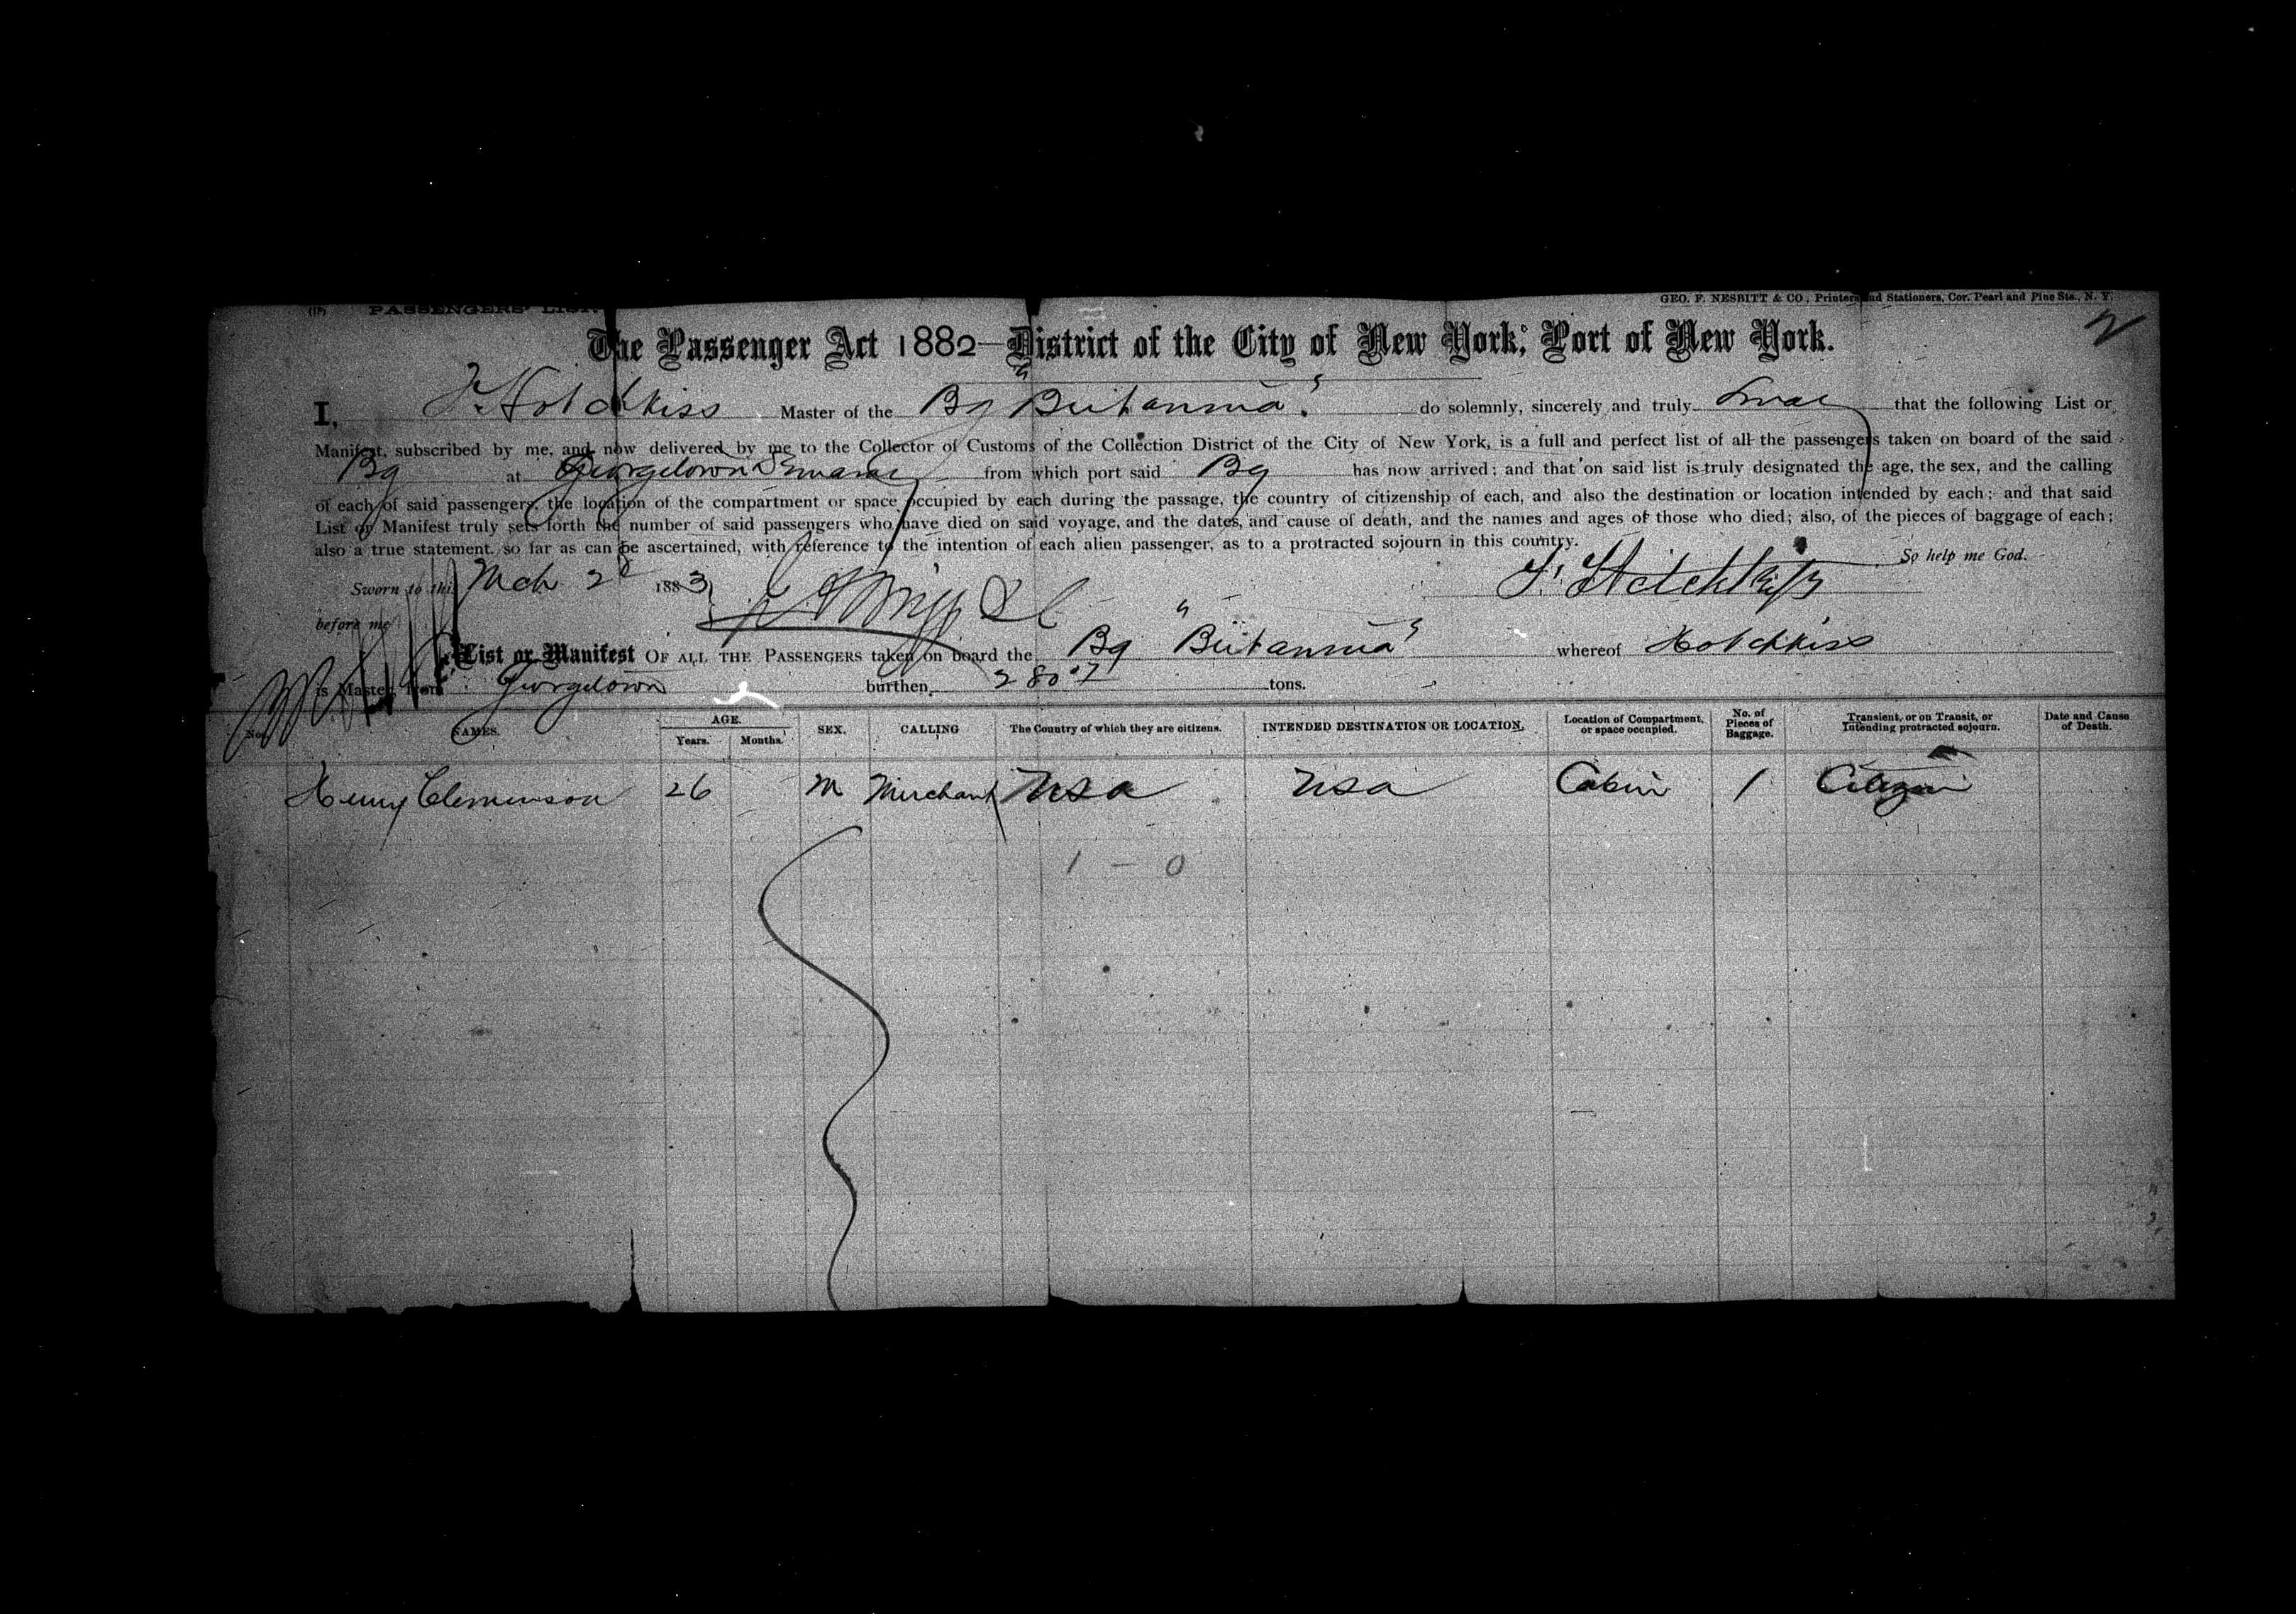 PASSENGERS' LIST.
GEO. F. NESBITT & CO., Printers and Stationers, Cor. Pearl and Pine Sts., N. Y.
The Passenger Act 1882—District of the City of New York, Port of New York.
I, F. Hotchkiss Master of the Bg "Britannia" do solemnly, sincerely and truly swear that the following List or
Manifest, subscribed by me, and now delivered by me to the Collector of Customs of the Collection District of the City of New York, is a full and perfect list of all the passengers taken on board of the said
Bg at Georgetown Demarara from which port said Bg has now arrived; and that on said list is truly designated the age, the sex, and the calling
of each of said passengers, the location of the compartment or space occupied by each during the passage, the country of citizenship of each, and also the destination or location intended by each; and that said
List or Manifest truly sets forth the number of said passengers who have died on said voyage, and the dates, and cause of death, and the names and ages of those who died; also, of the pieces of baggage of each;
also a true statement, so far as can be ascertained, with reference to the intention of each alien passenger, as to a protracted sojourn in this country.
So help me God.
Sworn to this Mch 2d 1883 F. Hotchkiss
before me
List or Manifest OF ALL THE PASSENGERS taken on board the Bg "Britannia" whereof Hotchkiss
is Master, from Georgetown burthen 280 07 tons.
No. NAMES. AGE. Years. Months. SEX. CALLING The Country of which they are citizens. INTENDED DESTINATION OR LOCATION. Location of Compartment, or space occupied. No. of Pieces of Baggage. Transient, or on Transit, or Intending protracted sojourn. Date and Cause of Death.
Henry Clemenson 26 M Merchant USA USA Cabin 1 Citizen
1 – 0